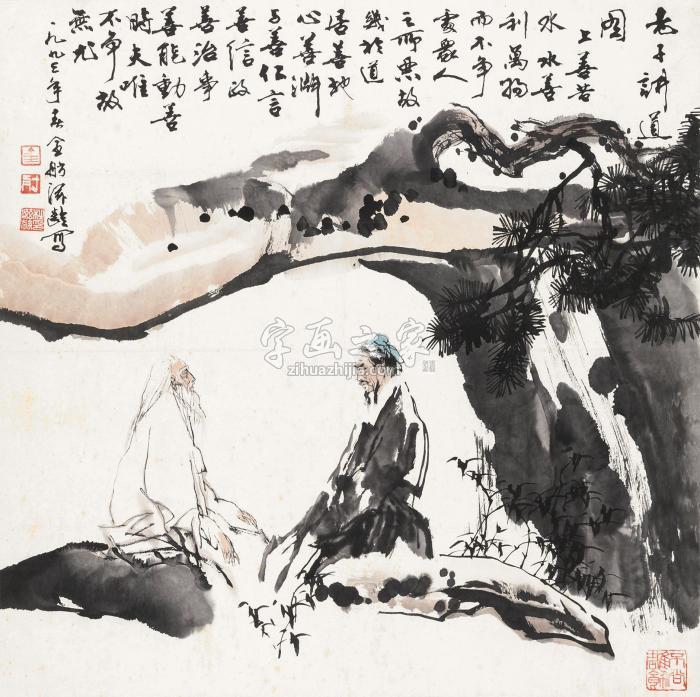 老子講道
图
上善若
水水善
利萬物
而不争
處衆人
之所惡故
幾於道
居善地
心善淵
与善仁言
善信政
善治事
善能動善
時夫唯
不争故
無尤
一九九三年春
字画之家
zihuazhijia.com